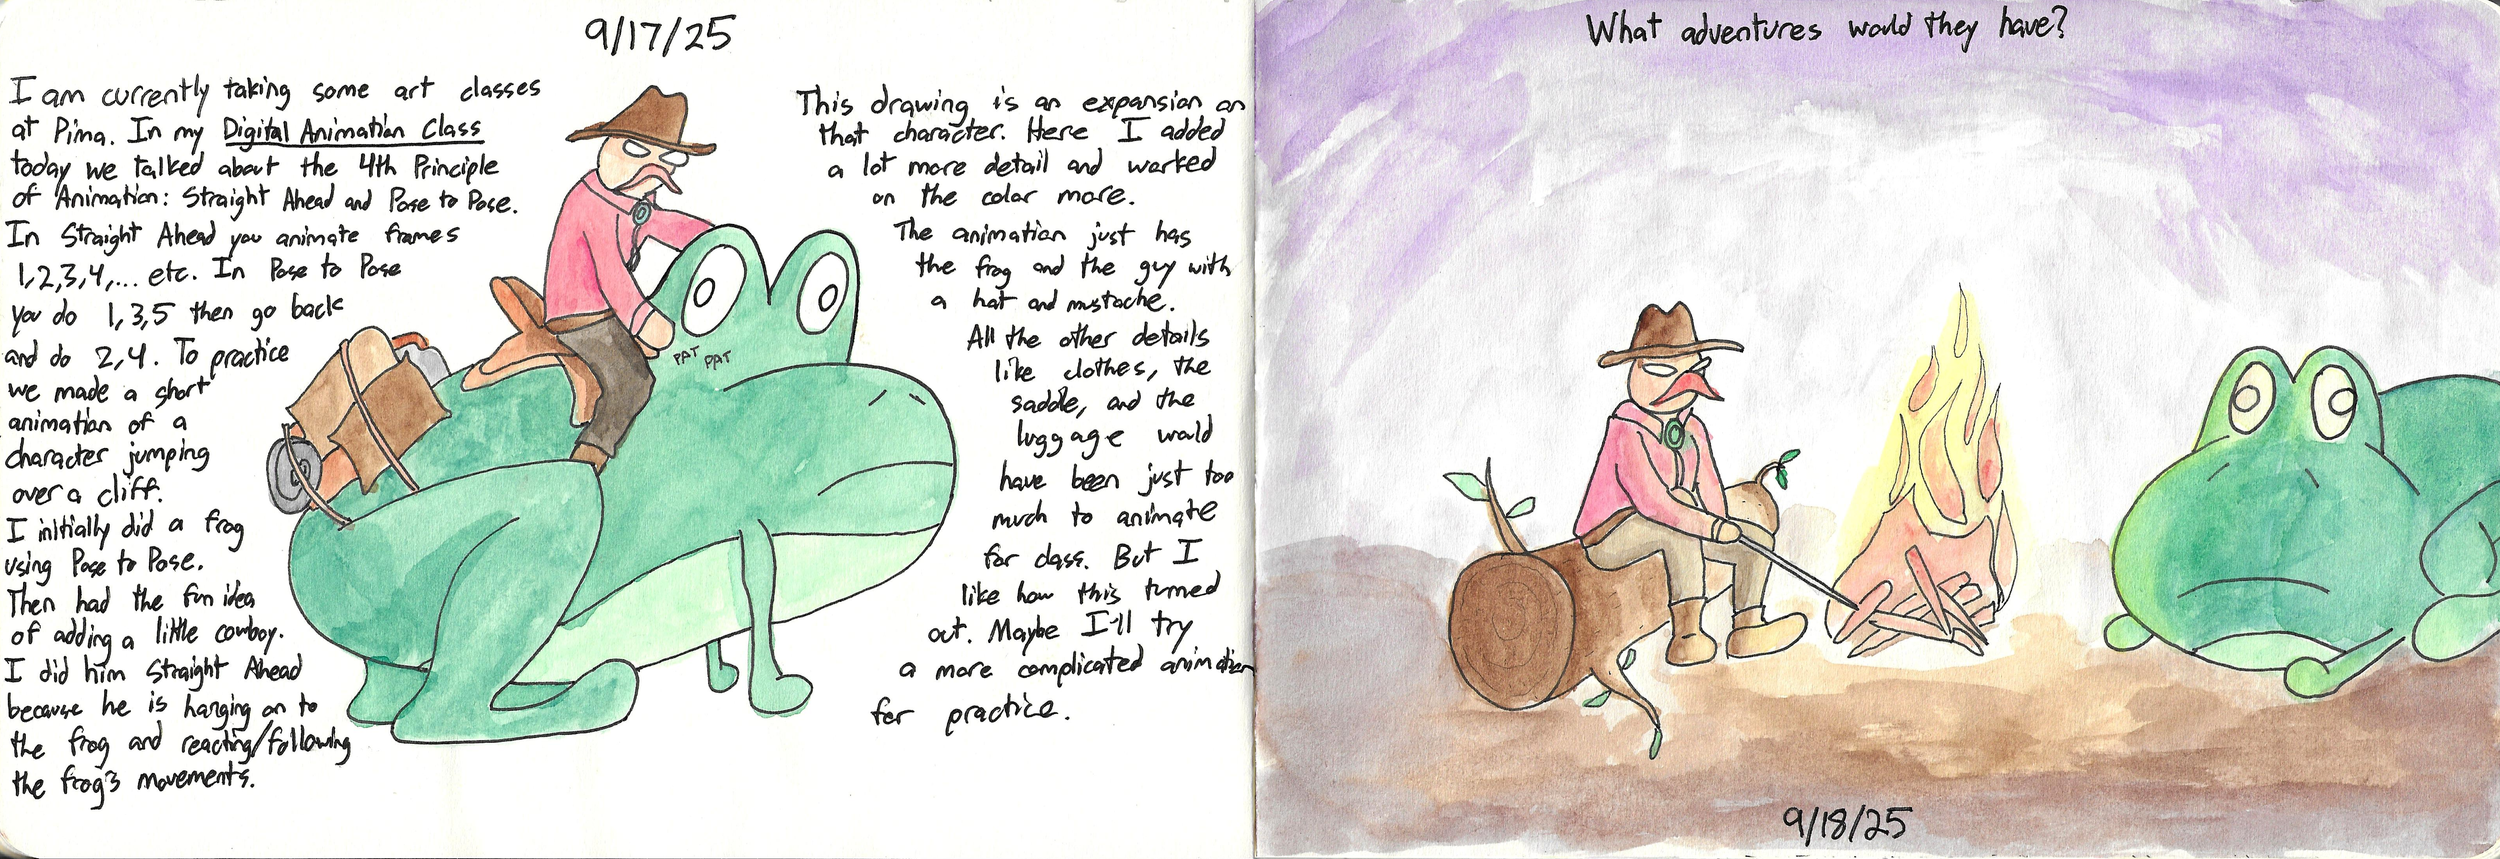 9/17/25
I am currently taking some art classes
at Pima. In my Digital Animation Class
today we talked about the 4th Principle
of Animation: Straight Ahead and Pose to Pose.
In Straight Ahead you animate frames
1,2,3,4,... etc. In Pose to Pose
you do 1,3,5 then go back
and do 2,4. To practice
we made a short
animation of a
character jumping
over a cliff.
I initially did a frog
using Pose to Pose.
Then had the fun idea
of adding a little cowboy.
I did him Straight Ahead
because he is hanging on to
the frog and reacting/following
the frog's movements.
PAT PAT
This drawing is an expansion on
that character. Here I added
a lot more detail and worked
on the color more.
The animation just has
the frog and the guy with
a hat and mustache.
All the other details
like clothes, the
saddle, and the
luggage would
have been just too
much to animate
for class. But I
like how this turned
out. Maybe I'll try
a more complicated animation
for practice.
What adventures would they have?
9/18/25